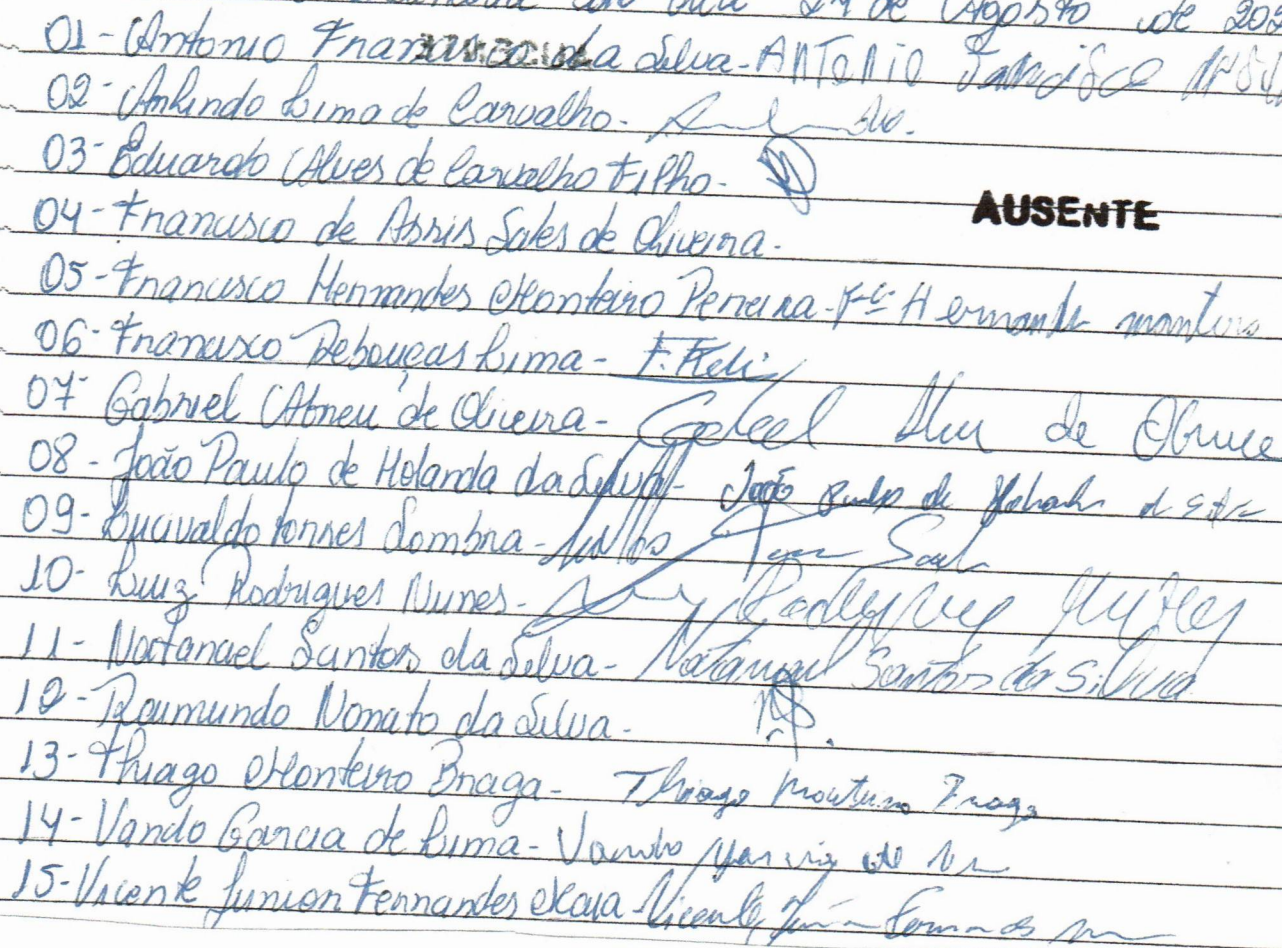 dia 27 de Agosto de 202
01- Antonio Francisco da Silva- ANTONIO Francisco
02- Arlindo Lima de Carvalho-
03- Eduardo Alves de Carvalho Filho-
AUSENTE
04- Francisco de Assis Sales de Oliveira-
05- Francisco Hermandes Monteiro Pereira-
06- Francisco Rebouças Lima- F. Feli
07- Gabriel Abreu de Oliveira- Gabriel de
08- João Paulo de Holanda da Silva- João Paulo de Holanda
09- Lucivaldo Torres Sombra-
10- Luiz Rodrigues Nunes- Rodrigues Nunes
11- Natanael Santos da Silva- Natanael Santos da Silva
12- Raimundo Nonato da Silva-
13- Thiago Monteiro Braga- Thiago Monteiro Braga
14- Vando Garcia de Lima- Vando Garcia de
15- Vicente Junior Fernandes Maia- Vicente Júnior Fernandes